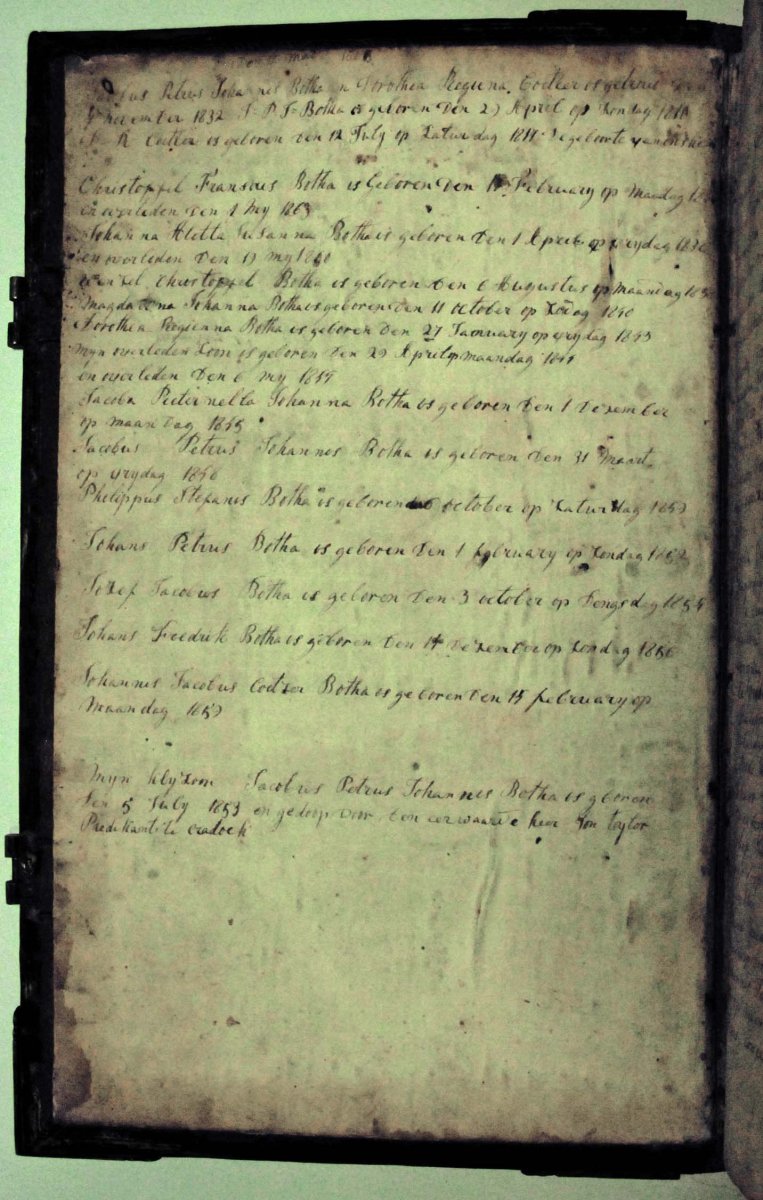 Petrus Johannes Botha n Dorothea Regiena Coetzer is getrout den
5 November 1832 J P J Botha is geboren den 29 April op Zondag 1810
D R Coetzer is geboren den 12 July op Zaturdag 1817 de geboorte van
Christoffel Fransius Botha is Geboren Den Februarry op maandag
en overleden Den 1 My 1863
Johanna Aletta Susanna Botha is geboren den 1 April op vrydag 1836
en overleden Den 19 my 1840
Christoffel Botha is geboren Den 6 Augustus op maandag
Magdalena Johanna Botha is geboren Den 11 october op Zondag 1840
Dorothea Regienna Botha is geboren Den 27 Januuary op vrydag 1843
myn overleden Zoon is geboren Den 29 April op maandag 1844
en overleden Den 6 My 1844
Jacoba Pieternella Johanna Botha is geboren Den 1 Dezember
op maandag 1845
Jacobus Petrus Johannes Botha is geboren Den 31 Maart
op vrydag 1848
Philippus Stefanis Botha is geboren october op Zaturdag 1849
Johans Petrus Botha is geboren Den 1 february op Zondag 1852
Jozef Jacobus Botha is geboren Den 3 october op Dengsdag 1854
Johans Fredrik Botha is geboren Den 14 Dezember op Zondag 1856
Johannis Jacobus Coetzer Botha is geboren Den 15 february op
Maandag 1859
Myn kly Zoon Jacobus Petrus Johannes Botha is gboren
Den 5 July 1853 en gedoop Door Den eerwaarde heer Jon taylor
Predikant te Cradock